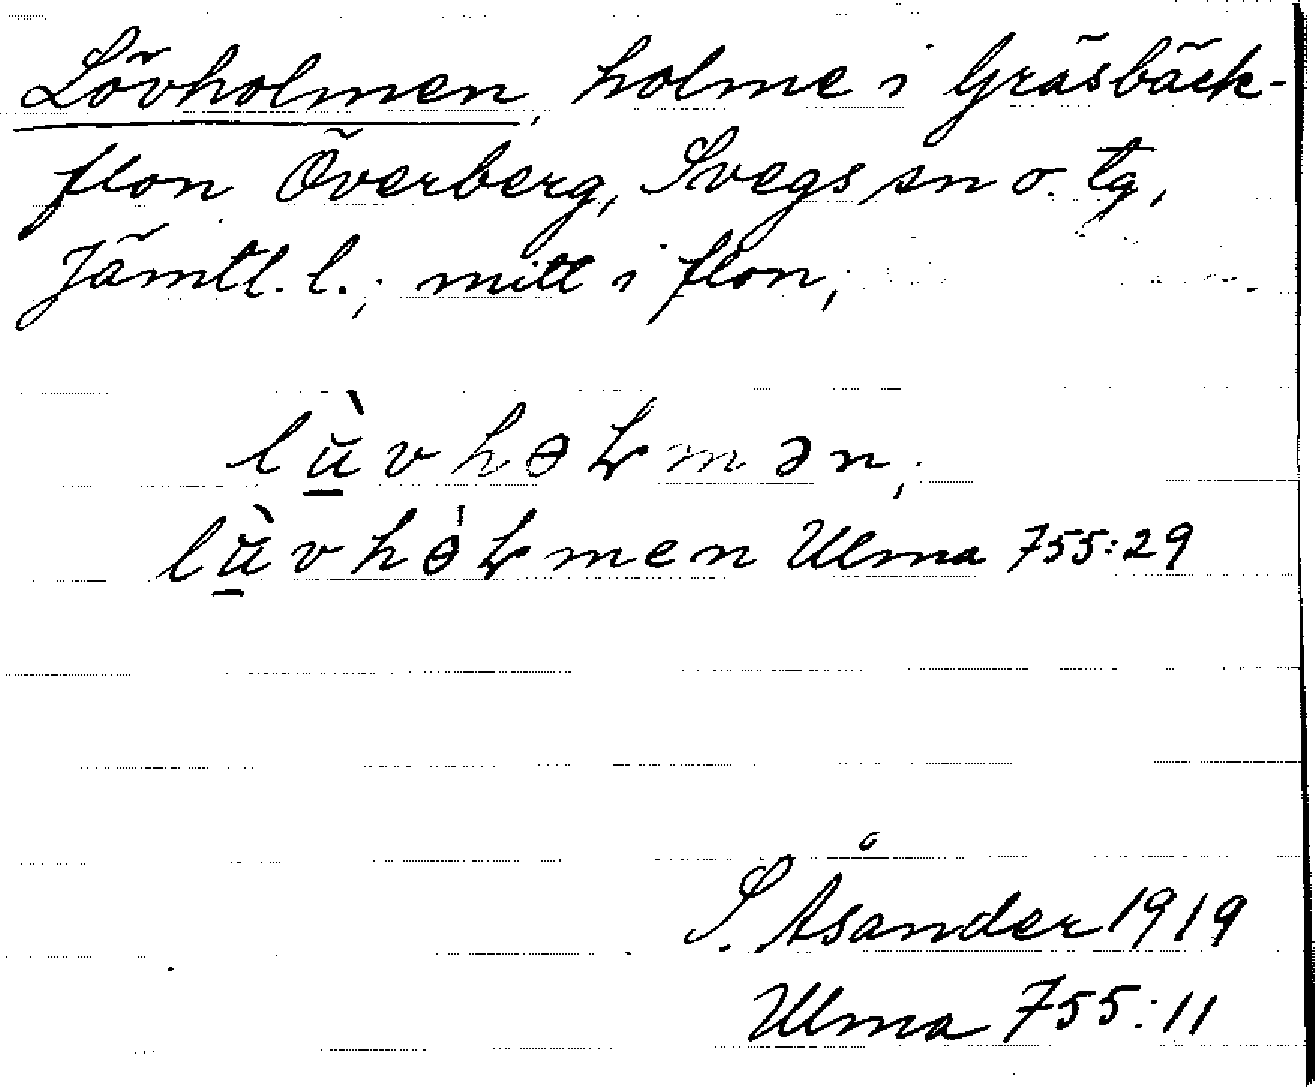 Lövholmen, holme i Gräsbäck-
flon Överberg, Svegs sn o. tg,
Jämtl. l.; mitt i flon;
lù̲vhɵɫmən;
lù̲vhɵ̍ɫmen Ulma 755:29
S. Åsander 1919
Ulma 755:11